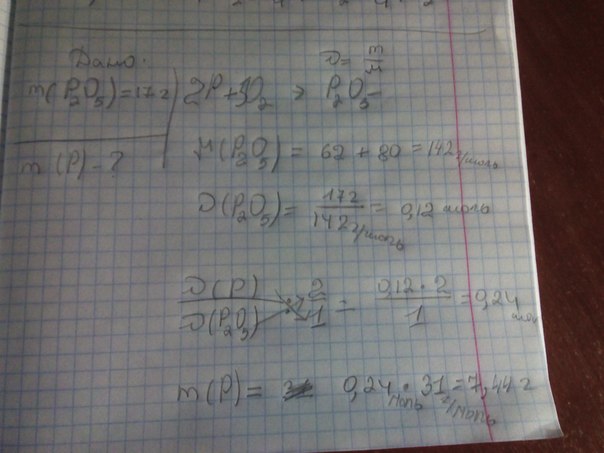 Дано:
m(P₂O₅)=17г
m(P)-?
ν = m/M
2P+5O₂ → P₂O₅
M(P₂O₅) = 62 + 80 = 142 г/моль
ν(P₂O₅) = 17г/142г/моль = 0,12 моль
ν(P)/ν(P₂O₅) = 2/1 = 0,12·2/1 = 0,24 моль
m(P) = 0,24 моль · 31 г/моль = 7,44 г